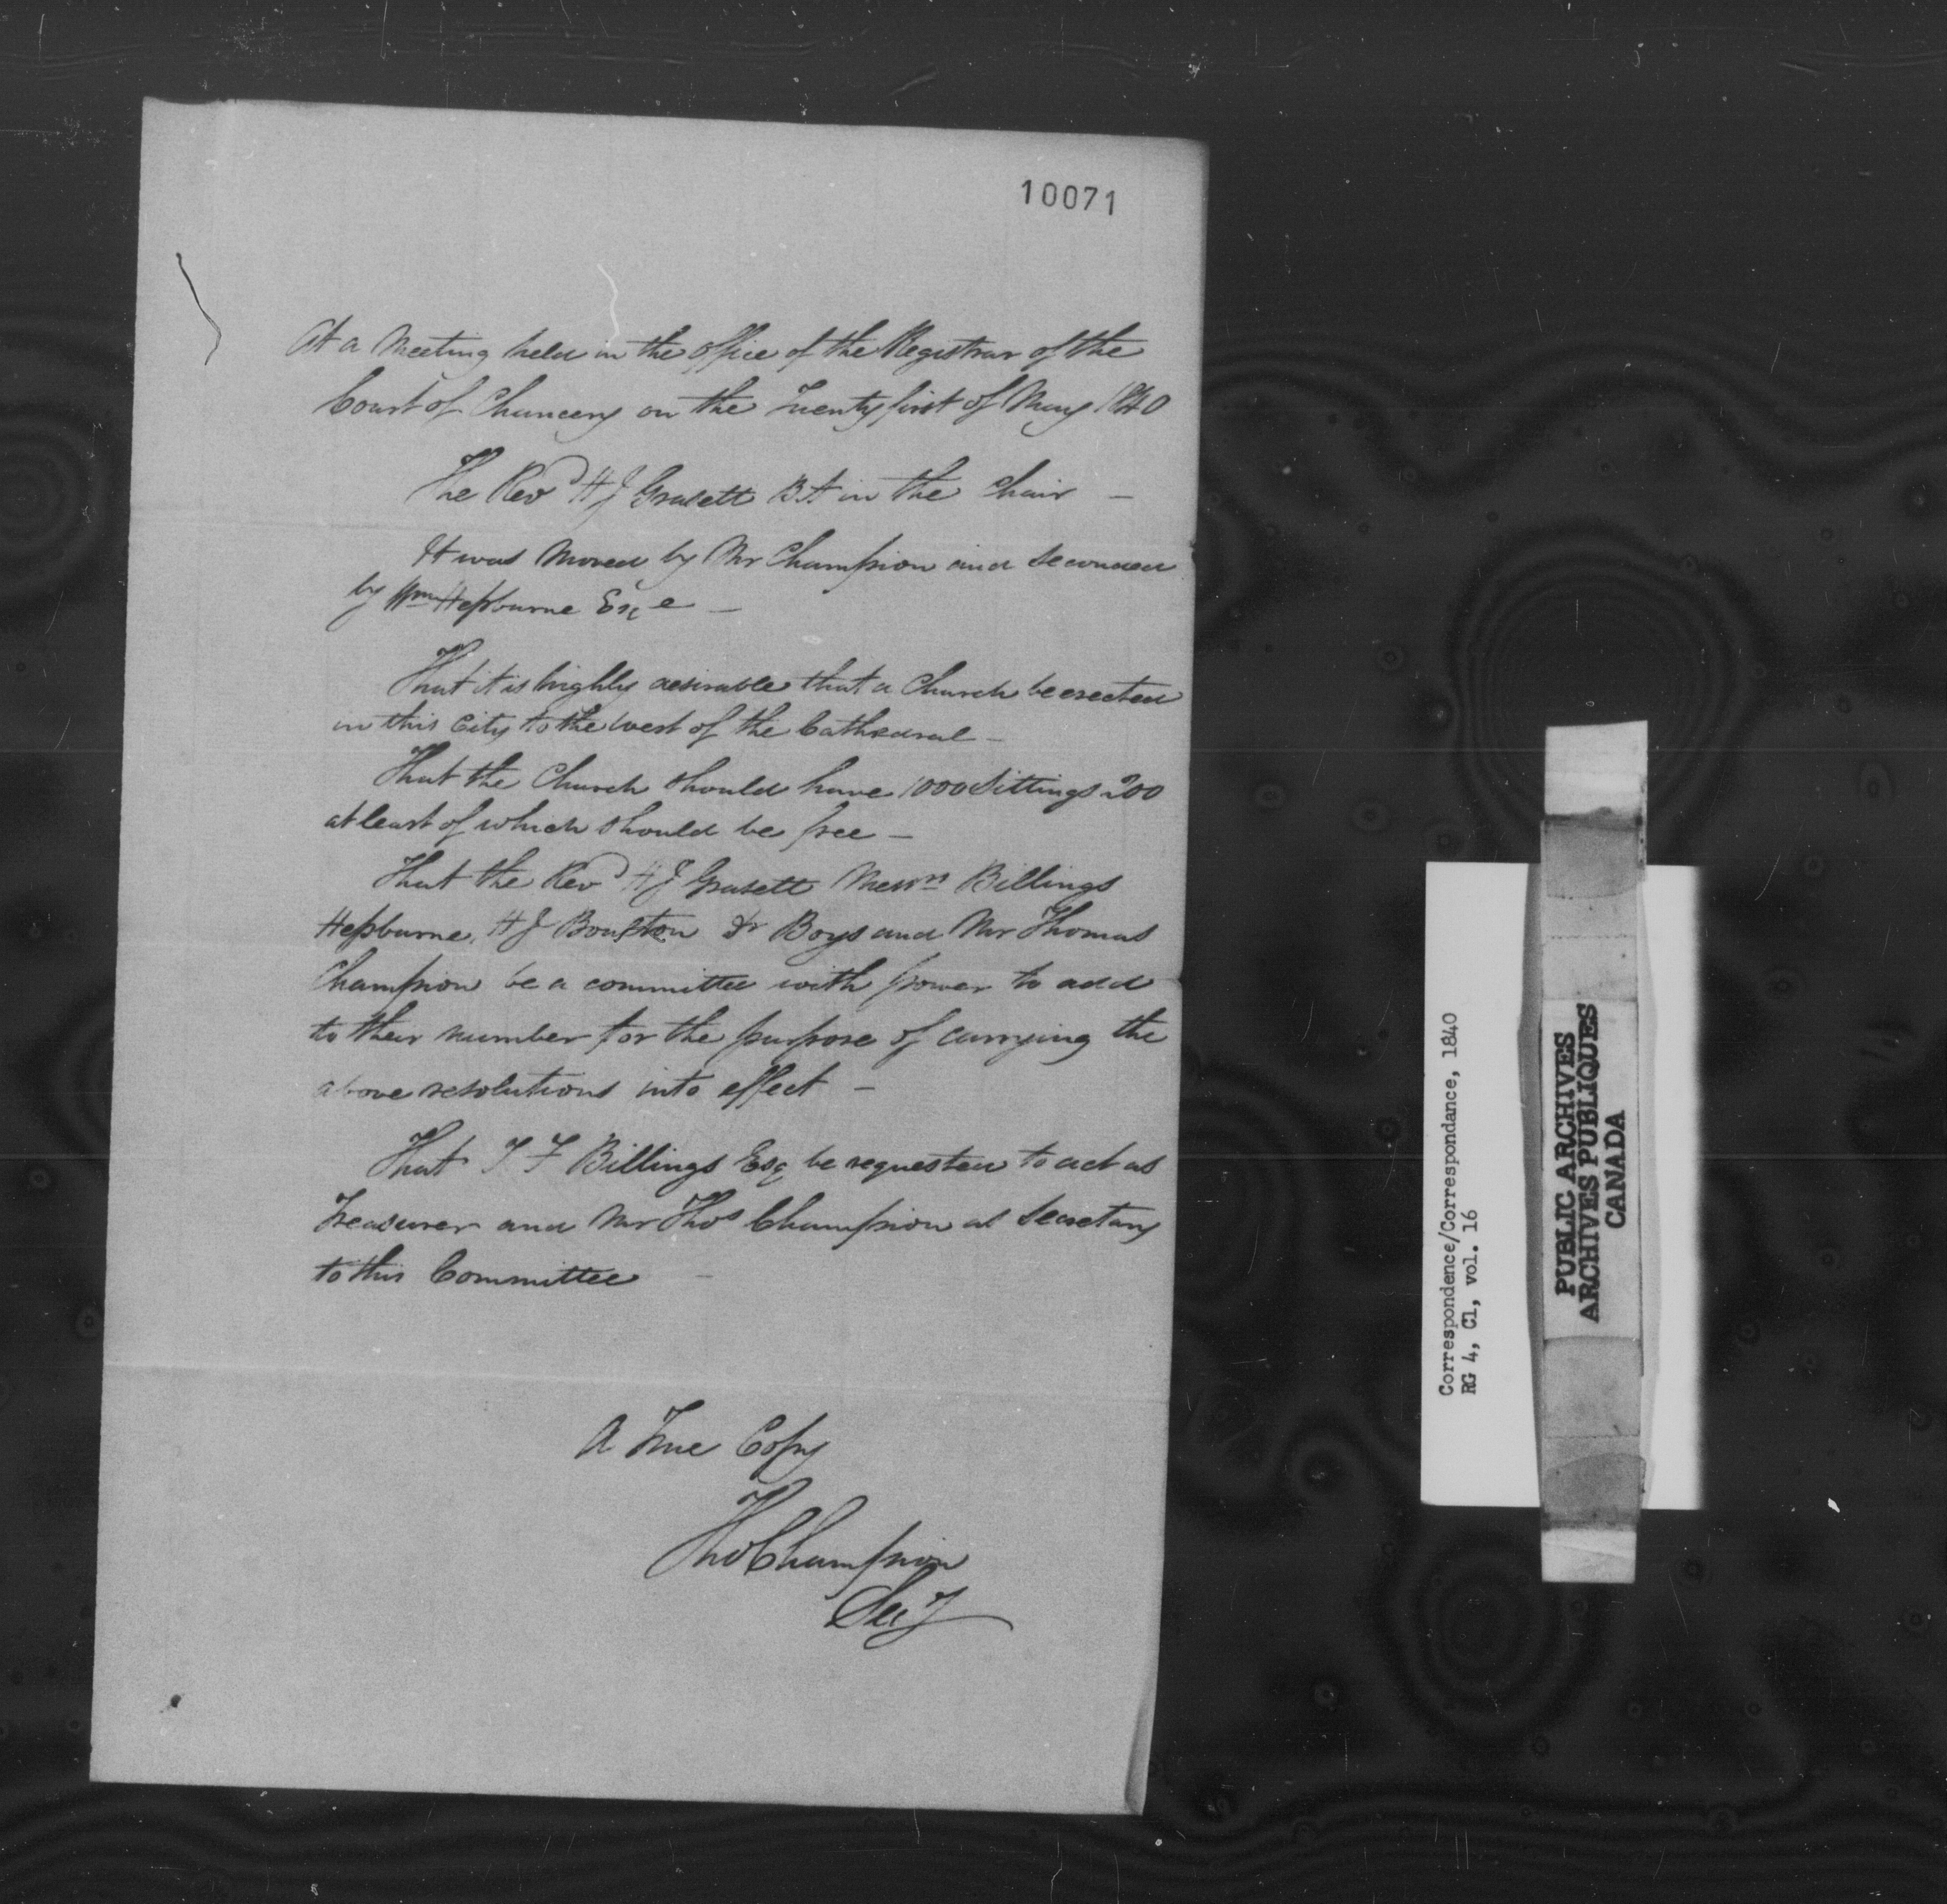 10071
At a Meeting held in the office of the Registrar of the
Court of Chancery on the Twenty first of May 1840
The Revd H J Grasett B A in the Chair —
It was Moved by Mr Champion and Seconded
by Wm Hepburne Esqe —
That it is highly desirable that a Church be erected
in this City to the West of the Cathedral —
That the Church should have 1000 Sittings 200
at least of which should be free —
That the Revd H J Grasett Messrs Billings
Hepburne, H J Boulton Dr Boys and Mr Thomas
Champion be a committee with power to add
to their number for the purpose of carrying the
above resolutions into effect —
That T F Billings Esq be requested to act as
Treasurer and Mr Thos Champion as Secretary
to this Committee —
A True Copy
Tho Champion
Secy
Correspondence/Correspondance, 1840
RG 4, C1, vol. 16
PUBLIC ARCHIVES
ARCHIVES PUBLIQUES
CANADA